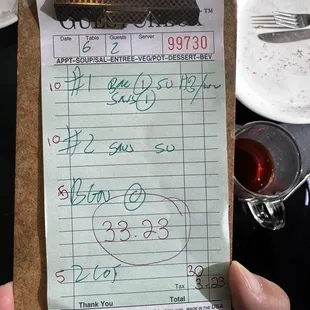 GUEST CHECK ™
Date Table Guests Server
6 2 99730
APPT-SOUP/SAL-ENTREE-VEG/POT-DESSERT-BEV
10 #1 Bac 1 SU HB/
Saus 1
10 #2 Saus SU
5
33.23
5 2 COF 30
Tax 3.23
Thank You Total
MADE IN THE USA